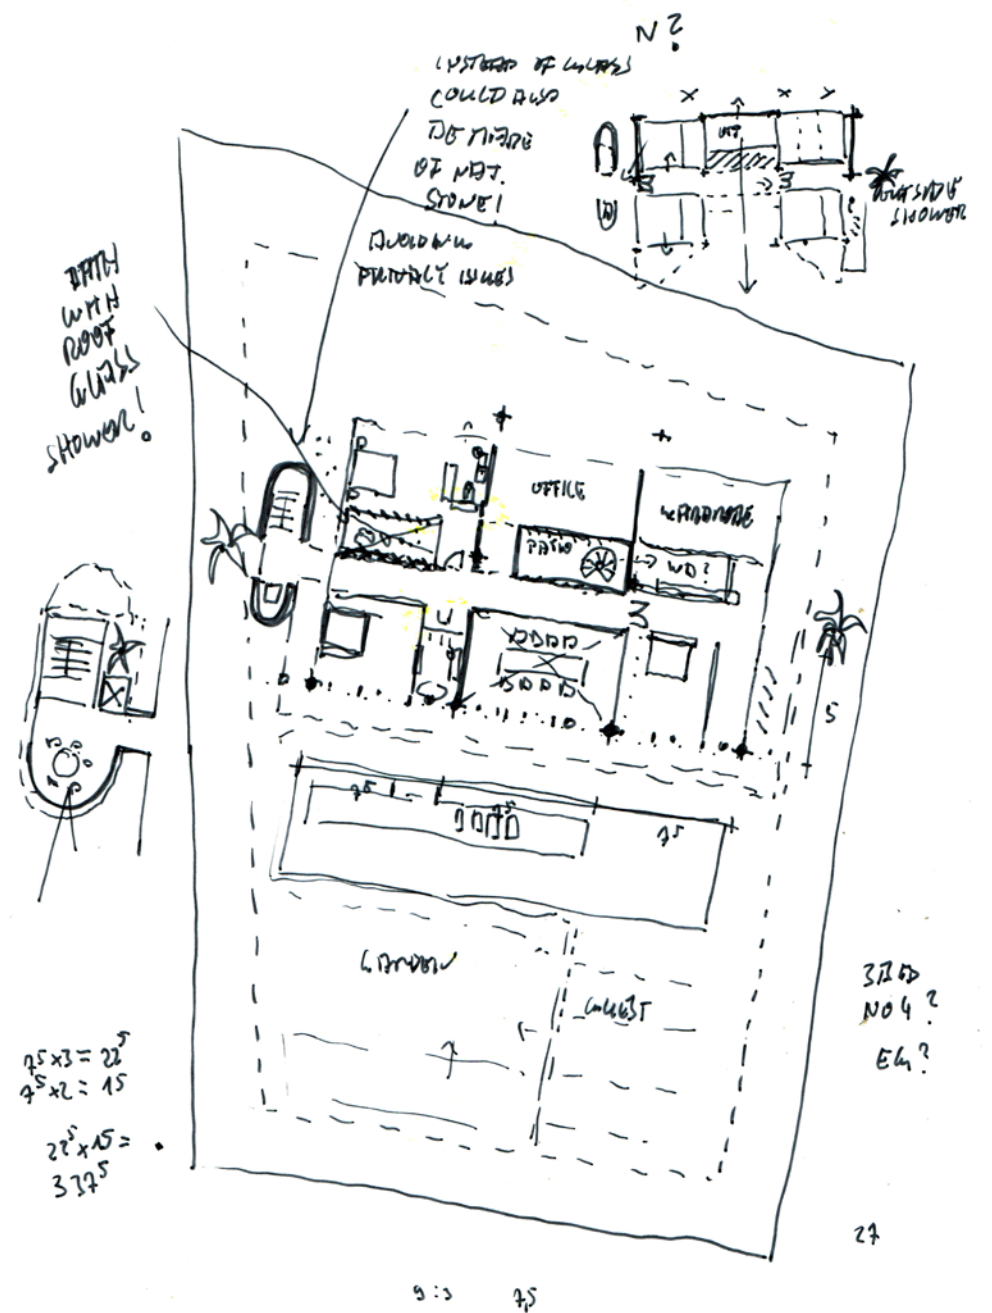 N?
INSTEAD OF GLASS
COULD ALSO
BE MADE
OF NAT.
STONE!
AVOIDING
PRIVACY ISSUES
OUTSIDE
SHOWER
BATH
WITH
ROOF
GLASS
SHOWER!
OFFICE
WARDROBE
PATIO
WD?
5
7⁵
7⁵
7⁵
GARDEN
GUEST
3BED
NO 4?
EG?
7⁵x3 = 22⁵
7⁵x2 = 15
22⁵x15 =
337⁵
27
9:3 7,5